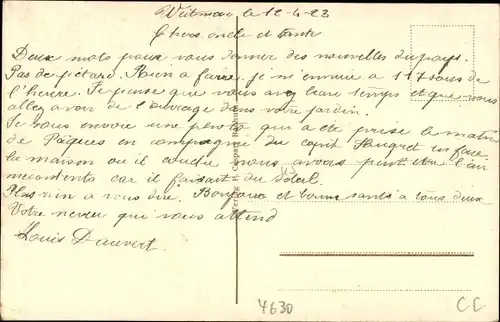 le 12-4-23
Chers oncle et tante
Deux mots pour vous donner des nouvelles du pays.
Pas de pétard. Rien à faire. je m'ennuie à 117 sous de
l'heure. Je pense que vous avez beau temps et que vous
allez avoir de l'ouvrage dans votre jardin.
Je vous envoie une photo qui a été prise le matin
de Pâques en compagnie du en face
la maison ou il couche nous avons
car il faisait du soleil.
Plus rien a vous dire. Bonjour et bonne santé à tous deux
Votre neveu qui vous attend
Louis Dauvert.
4630
CC